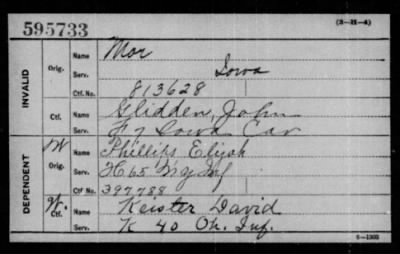 595733
(3-H-4)
INVALID
Orig.
Name Mor
Serv. Iowa
Ctf. No. 813628
Ctf.
Name Glidden, John
Serv. F 7 Iowa Cav
DEPENDENT
W
Orig.
Name Phillips Elijah
Serv. H 65 Inf
Ctf No. 397788
W.
Ctf.
Name Keister David
Serv. K 40 Oh. Inf.